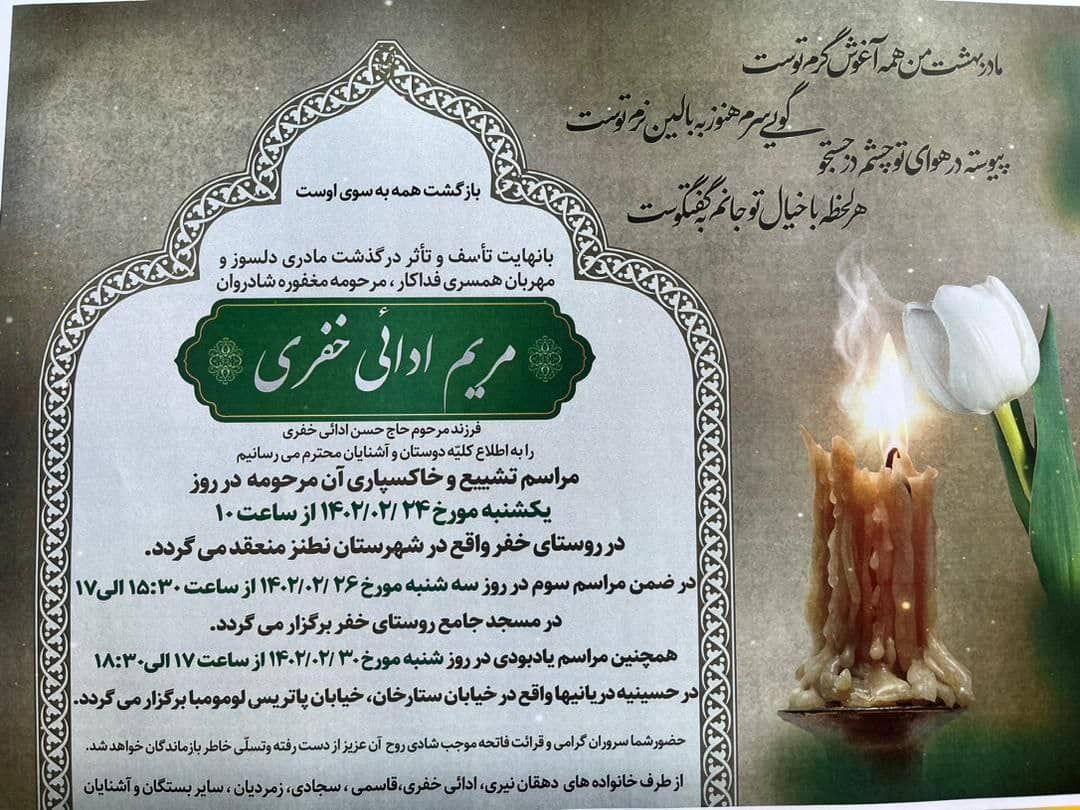 مادر بهشت من همه آغوش گرم توست
گویی سرم هنوز به بالین نرم توست
پیوسته در هوای تو چشم در جستجو
هر لحظه با خیال تو جانم به گفتگوست
بازگشت همه به سوی اوست
بانهایت تأسف و تأثر درگذشت مادری دلسوز و
مهربان همسری فداکار ، مرحومه مغفوره شادروان
مریم ادائی خفری
فرزند مرحوم حاج حسن ادائی خفری
را به اطلاع کلیّه دوستان و آشنایان محترم می رسانیم
مراسم تشییع و خاکسپاری آن مرحومه در روز
یکشنبه مورخ ۲۴ /۱۴۰۲/۰۲ از ساعت ۱۰
در روستای خفر واقع در شهرستان نطنز منعقد می گردد.
در ضمن مراسم سوم در روز سه شنبه مورخ ۲۶ /۱۴۰۲/۰۲ از ساعت ۱۵:۳۰ الی ۱۷
در مسجد جامع روستای خفر برگزار می گردد.
همچنین مراسم یادبودی در روز شنبه مورخ ۳۰ /۱۴۰۲/۰۲ از ساعت ۱۷ الی ۱۸:۳۰
در حسینیه دریانیها واقع در خیابان ستارخان، خیابان پاتریس لومومبا برگزار می گردد.
حضور شما سروران گرامی و قرائت فاتحه موجب شادی روح آن عزیز از دست رفته وتسلّی خاطر بازماندگان خواهد شد.
از طرف خانواده های دهقان نیری، ادائی خفری، قاسمی ، سجادی، زمردیان ، سایر بستگان و آشنایان